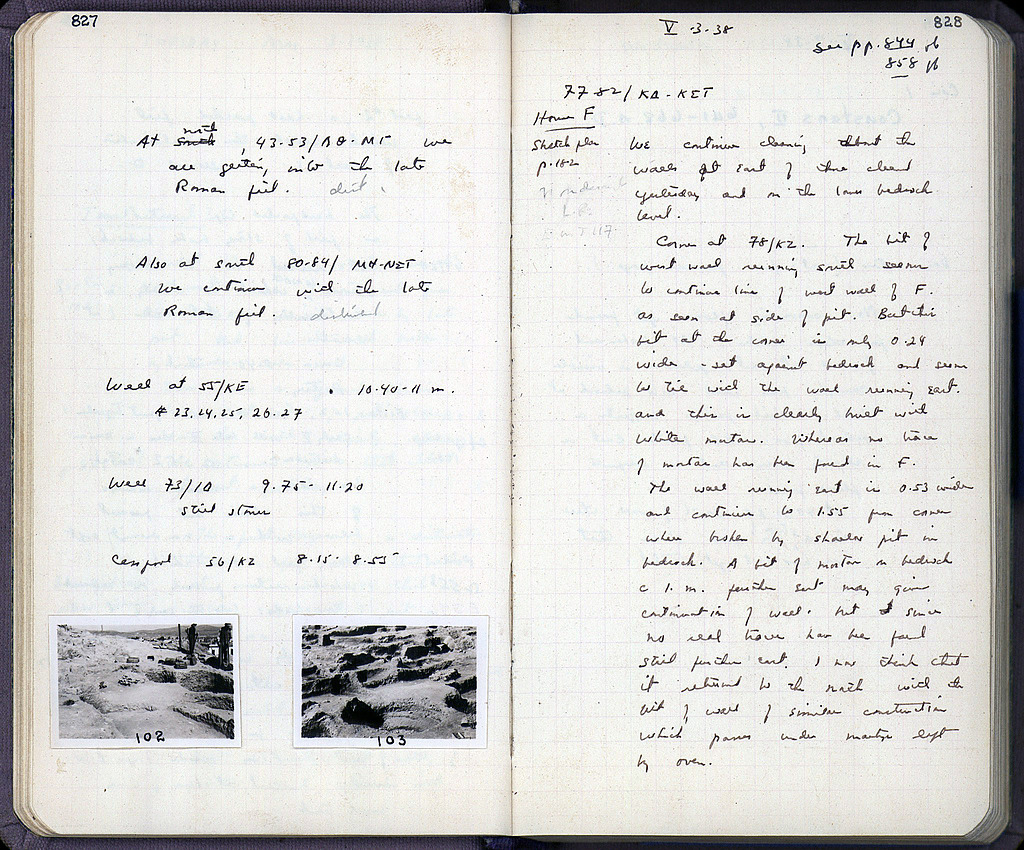 827
At north South, 43-53/ΛΘ-ΜΓ we
are getting into the late
Roman fill. dist.
Also at south 80-84/ ΜΗ-ΝΕΤ
we continue with the late
Roman fill. disturbed
Well at 55/ΚΕ . 10.40-11 m.
# 23,24,25, 26.27
Well 73/ΙΘ 9.75 - 11.20
still stones
Cesspool 56/ΚΖ 8.15 - 8.55
102
103
828
V-3-38
see pp. 844 ff
858 ff
77-82/ΚΔ-ΚΣΤ
House F
Sketch plan
p. 182
We continue cleaning about the
walls at East of those cleared
yesterday and on the lower bedrock
level.
Corner at 78/ΚΖ. The bit of
west wall running south seems
to continue line of west wall of F.
as seen at side of pit. But this
bit at the corner is only 0.24
wide - set against bedrock and seems
to tie with the wall running East.
and this is clearly built with
white mortar. Whereas no trace
of mortar has been found in F.
The wall running East is 0.53 wide
and continues to 1.55 from corner
where broken by shallow pit in
bedrock. A bit of mortar on bedrock
c 1. m. further east may give
continuation of wall. but since
no real traces have been found
still further east. I now think that
it returned to the north with the
bit of wall of similar construction
which passes under martyr left
by oven.